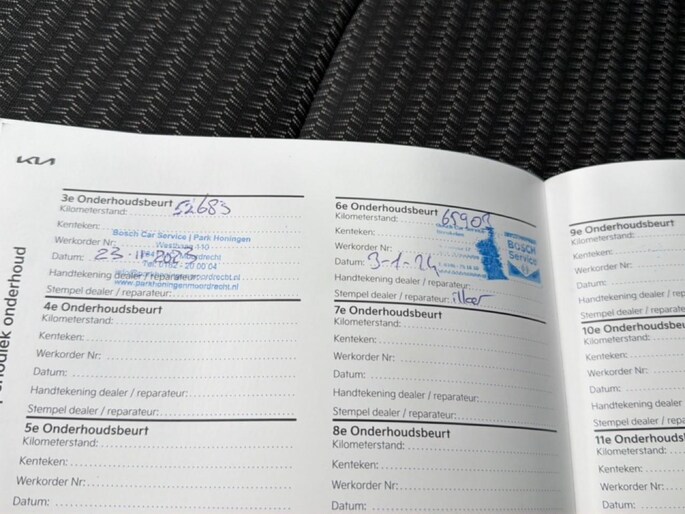 KIA
Periodiek onderhoud
3e Onderhoudsbeurt
Kilometerstand: 52683
Kenteken:
Bosch Car Service | Park Honingen
Werkorder Nr:
Datum: 23-11-2023
Handtekening dealer / reparateur:
Stempel dealer / reparateur:
4e Onderhoudsbeurt
Kilometerstand:
Kenteken:
Werkorder Nr:
Datum:
Handtekening dealer / reparateur:
Stempel dealer / reparateur:
5e Onderhoudsbeurt
Kilometerstand:
Kenteken:
Werkorder Nr:
Datum:
6e Onderhoudsbeurt
Kilometerstand:
Kenteken:
Werkorder Nr:
BOSCH
Service
Datum: 3-1-24
Handtekening dealer / reparateur:
Stempel dealer / reparateur:
7e Onderhoudsbeurt
Kilometerstand:
Kenteken:
Werkorder Nr:
Datum:
Handtekening dealer / reparateur:
Stempel dealer / reparateur:
8e Onderhoudsbeurt
Kilometerstand:
Kenteken:
Werkorder Nr:
Datum:
9e Onderhoudsbeurt
Kilometerstand:
Kenteken:
Werkorder Nr:
Datum:
Handtekening dealer / reparat
Stempel dealer / reparateur
10e Onderhoudsbeu
Kilometerstand:
Kenteken:
Werkorder Nr:
Datum:
Handtekening dealer
Stempel dealer / repar
11e Onderhouds
Kilometerstand:
Kenteken:
Werkorder Nr: